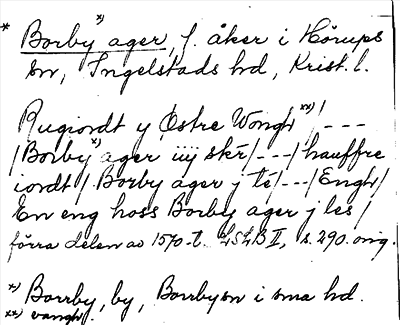 * Borby*) ager, f. åker i Hörups
sn, Ingelstads hd, Krist. l.
Rugiordt y Østre Wongh **) / - - -
/ Borby*) ager iiij skr / - - - / hauffre
iordt / Borby ager j te / - - - / Engh /
En eng hoss Borby ager j les /
förra delen av 1570-t. LSLB II, s. 290. orig.
*) Borrby, by, Borrby sn i sma hd.
**) vangh.